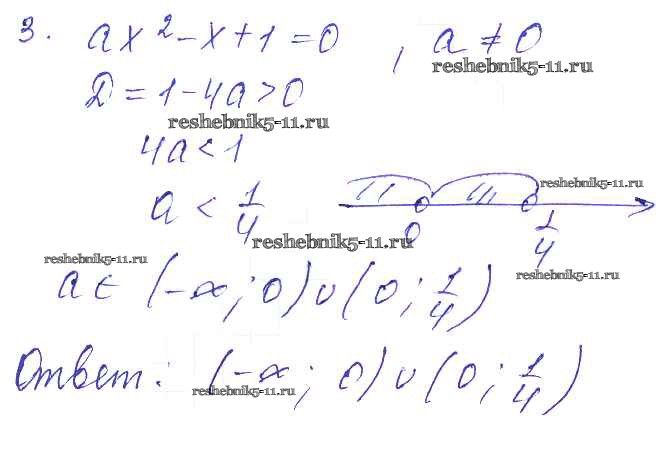 3. ax² - x + 1 = 0 , a ≠ 0
reshebnik5-11.ru
D = 1 - 4a > 0
reshebnik5-11.ru
4a < 1
reshebnik5-11.ru
a < 1/4
0 1/4
reshebnik5-11.ru
reshebnik5-11.ru
reshebnik5-11.ru
a ∈ (-∞; 0) ∪ (0; 1/4)
Ответ: (-∞; 0) ∪ (0; 1/4)
reshebnik5-11.ru